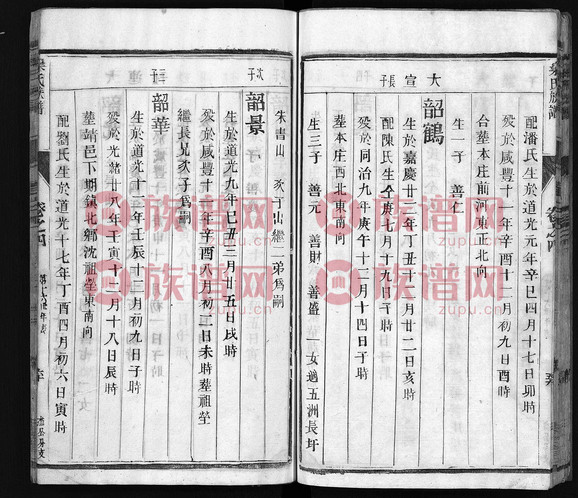 配潘氏生於道光元年辛巳四月十七日卯時
歿於咸豐十一年辛酉十二月初九日酉時
台塋本庄前河東正北向
生一子 善仁
大宣長子
韶鶴
生於嘉慶廿二年丁丑十一月廿二日亥時
配陳氏生仝庚七月十九日子時
歿於同治九年庚午十二月十四日子時
塋本庄西北東南向
生三子 善元 善財 善盛 一女適五洲長圩
朱書山 次丁山繼二弟為嗣
次子
韶景
生於道光九年己丑三月廿五日戌時
歿於咸豐十一年辛酉八月初二日未時塋祖塋
繼長兄次子為嗣
三子
韶華
生於道光十二年壬辰十三月初九日子時
歿於光緒廿八年壬寅十二月十八日辰時
塋靖邑下垌鎮北鄉沈祖塋東南向
配劉氏生於道光十七年丁酉四月初六日寅時
氏族譜
卷之四
族谱网
zupu.cn